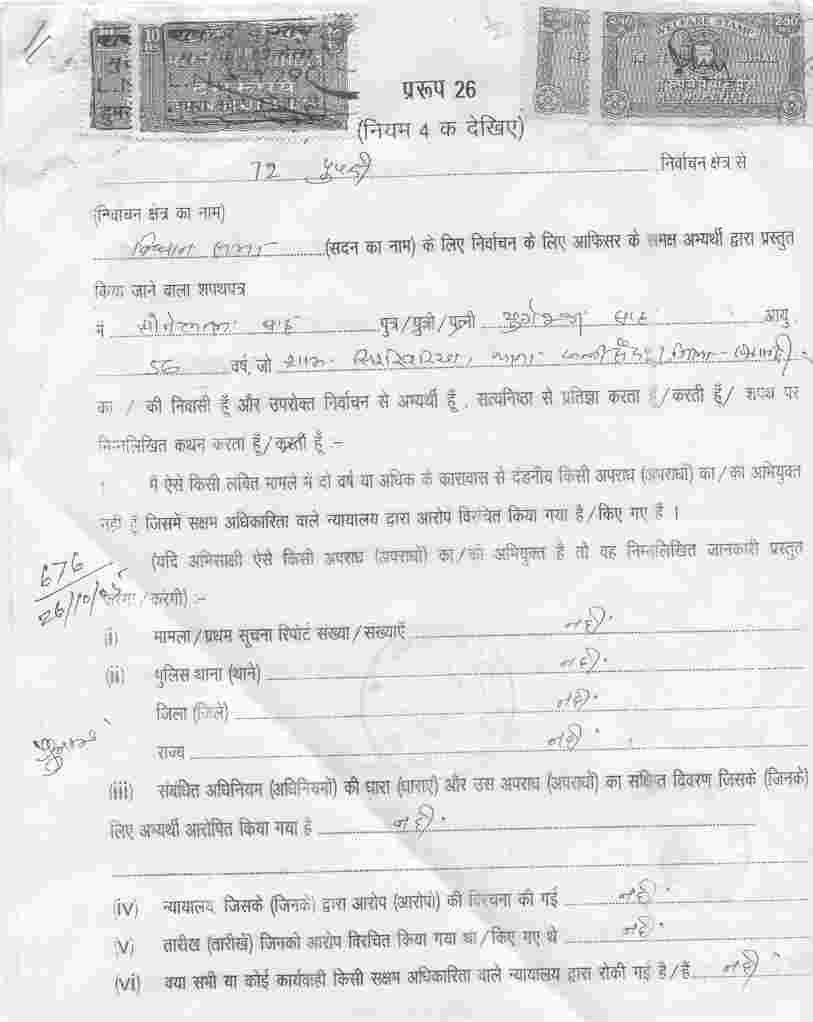 10
WELFARE STAMP
250
प्ररूप 26
(नियम 4 क देखिए)
72 निर्वाचन क्षेत्र से
(निर्वाचन क्षेत्र का नाम)
विधान सभा (सदन का नाम) के लिए निर्वाचन के लिए आफिसर के समक्ष अभ्यर्थी द्वारा प्रस्तुत
किया जाने वाला शपथपत्र
में साह पुत्र/पुत्री/पत्नी साह आयु
56 वर्ष, जो जिला-
का / की निवासी हूँ और उपरोक्त निर्वाचन से अभ्यर्थी हूँ , सत्यनिष्ठा से प्रतिज्ञा करता हूँ/करती हूँ/ शपथ पर
निम्नलिखित कथन करता हूँ/करती हूँ :-
में ऐसे किसी लंबित मामले में दो वर्ष या अधिक के कारावास से दंडनीय किसी अपराध (अपराधों) का/का अभियुक्त
नहीं हूँ जिसमे सक्षम अधिकारिता वाले न्यायालय द्वारा आरोप विरचित किया गया है/किए गए है ।
(यदि अभिसाक्षी ऐसे किसी अपराध (अपराधों) का/की अभियुक्त है तो वह निम्नलिखित जानकारी प्रस्तुत
करेगा/करेगी) :-
676
26/10/05
(i) मामला/प्रथम सूचना रिपोर्ट संख्या/संख्याएँ नहीं
(ii) पुलिस थाना (थाने) नहीं
जिला (जिले) नहीं
राज्य नहीं
(iii) संबंधित अधिनियम (अधिनियमों) की धारा (धाराएं) और उस अपराध (अपराधों) का संक्षिप्त विवरण जिसके (जिनके)
लिए अभ्यर्थी आरोपित किया गया है नहीं
(iv) न्यायालय जिसके (जिनके) द्वारा आरोप (आरोपों) की विरचना की गई नहीं
(v) तारीख (तारीखें) जिनको आरोप विरचित किया गया था/किए गए थे नहीं
(vi) क्या सभी या कोई कार्यवाही किसी सक्षम अधिकारिता वाले न्यायालय द्वारा रोकी गई है/हैं नहीं